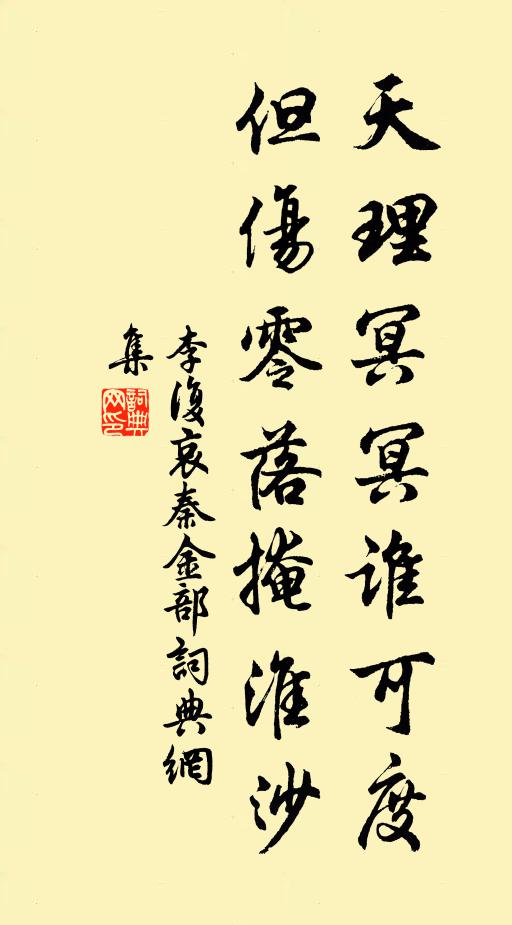 天理冥冥谁可度
但傷零落掩淮沙
李復哀秦金部詞典網
集
詞典網印